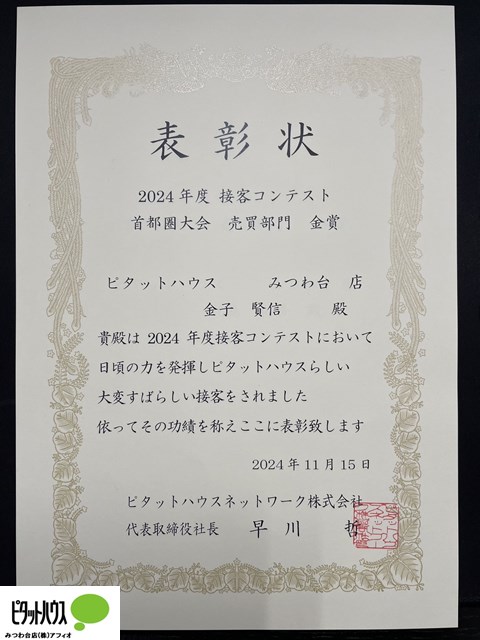 表彰状
2024年度 接客コンテスト
首都圏大会 売買部門 金賞
ピタットハウス みつわ台 店
金子 賢信 殿
貴殿は 2024 年度接客コンテストにおいて
日頃の力を発揮しピタットハウスらしい
大変すばらしい接客をされました
依ってその功績を称えここに表彰致します
2024年11月15日
ピタットハウスネットワーク株式会社
代表取締役社長 早川 哲
ピタットハウス
みつわ台店(株)アフィオ